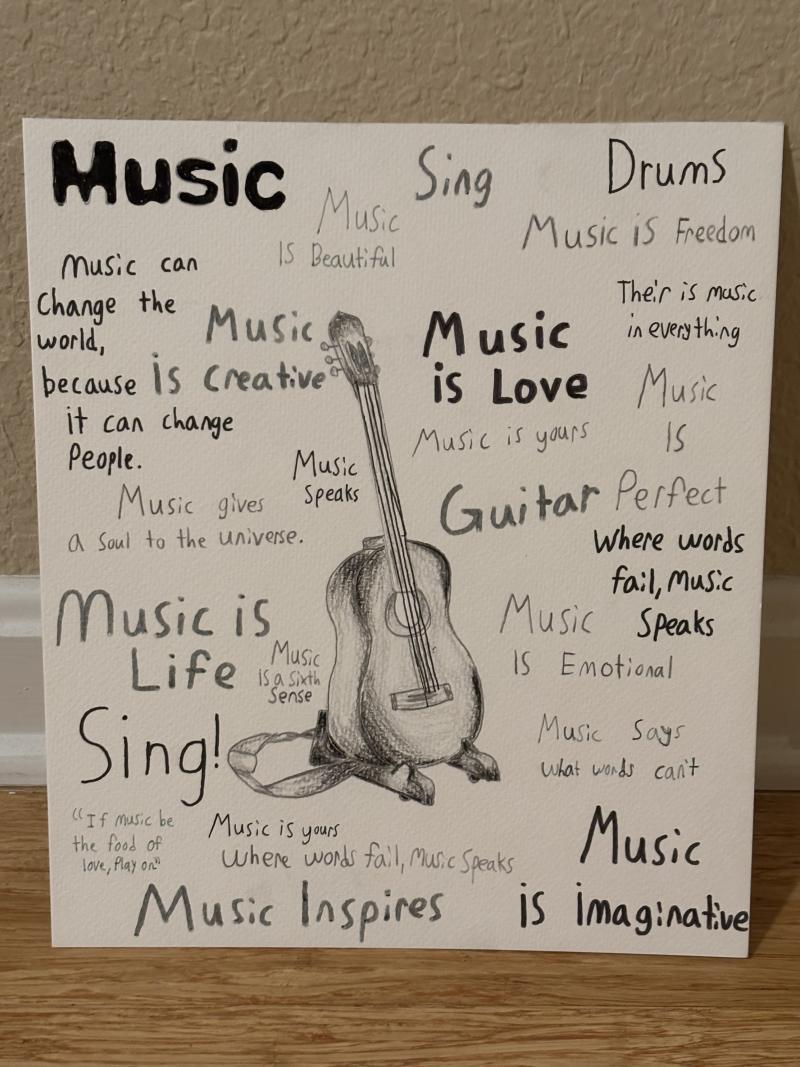 Music
Sing
Drums
Music
Is Beautiful
Music is Freedom
Music can
Change the
world,
because
it can change
People.
Music
is Creative
Music
is Love
Their is music
in everything
Music
Is
Perfect
Music is yours
Music
Speaks
Guitar
Music gives
a Soul to the universe.
Where words
fail, Music
Speaks
Music is
Life
Music
Is a Sixth
Sense
Music
Is Emotional
Sing!
Music Says
What words can't
"If music be
the food of
love, Play on"
Music is yours
Where words fail, Music Speaks
Music
is imaginative
Music Inspires